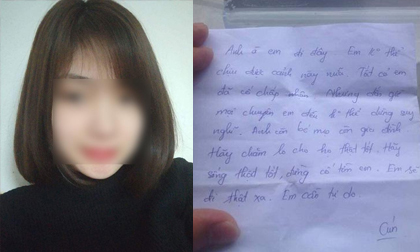 Anh à em đi đây. Em k thể
chịu được cảnh này nữa. Tất cả em
đã cố chấp nhận. Nhưng
mọi chuyện em đều k thể dừng suy
nghĩ. Anh còn bố mẹ còn gia đình
Hãy chăm lo cho họ thật tốt. Hãy
sống thật tốt, đừng cố tìm em. Em sẽ
đi thật xa. Em cần tự do.